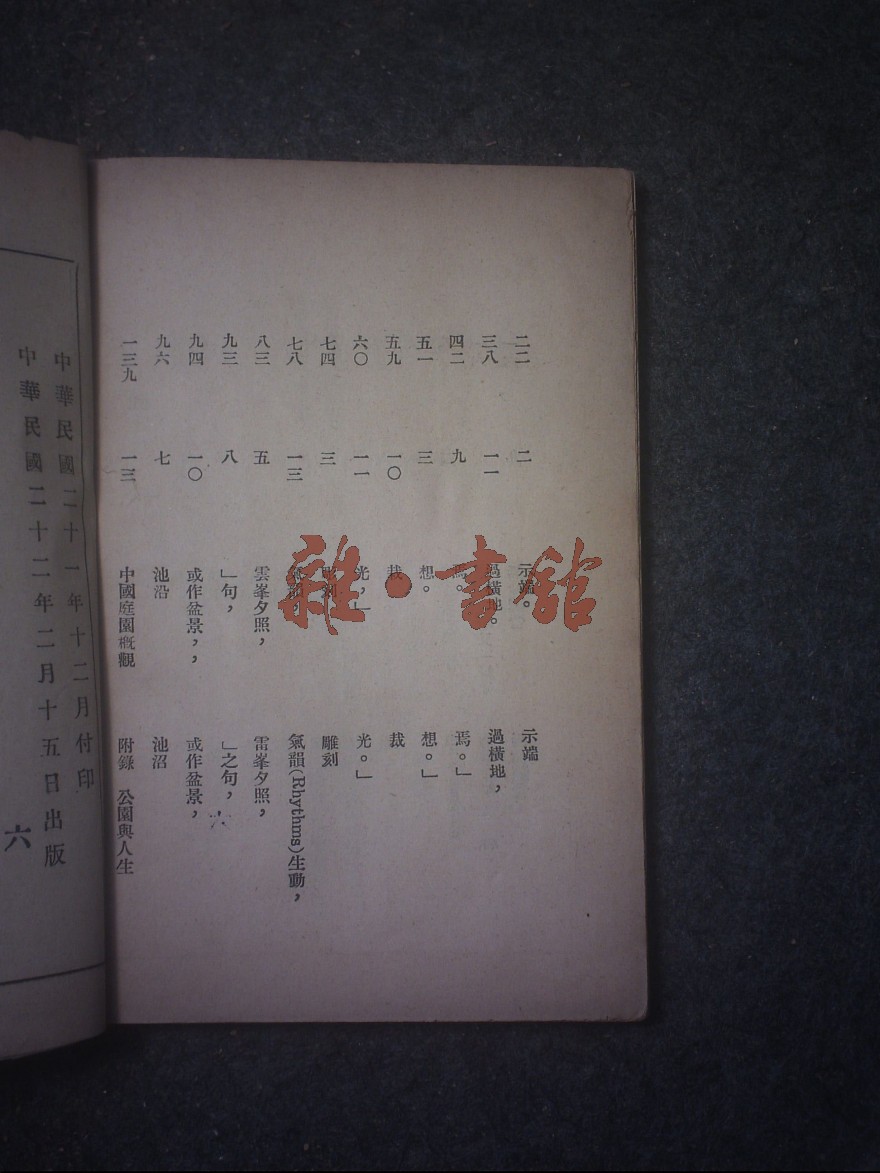 二二 二 示端。 示端
三八 一一 過橫地。 過橫地，
四二 九 焉。 焉。」
五一 三 想。 想。」
五九 一〇 栽 裁
六〇 一一 光，」 光。」
七四 三 彫刻 雕刻
七八 一三 氣韻， 氣韻(Rhythms)生動，
八三 五 雲峯夕照， 雷峯夕照，
九三 八 」句， 」之句，
九四 一〇 或作盆景，， 或作盆景，
九六 七 池沿 池沼
一三九 一三 中國庭園概觀 附錄 公園與人生
中華民國二十一年十二月付印
中華民國二十二年二月十五日出版
六
雜·書館